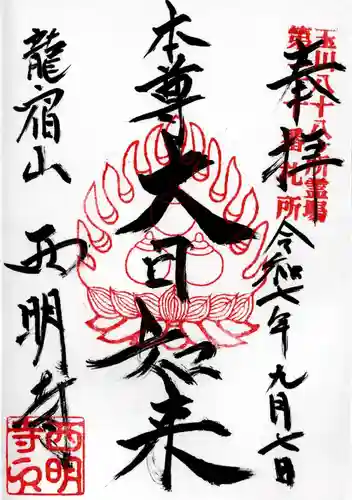 奉拝
令和七年九月七日
玉川八十八ヶ所霊場
第 番札所
本尊
大日如来
龍宿山
西明寺
西明寺印